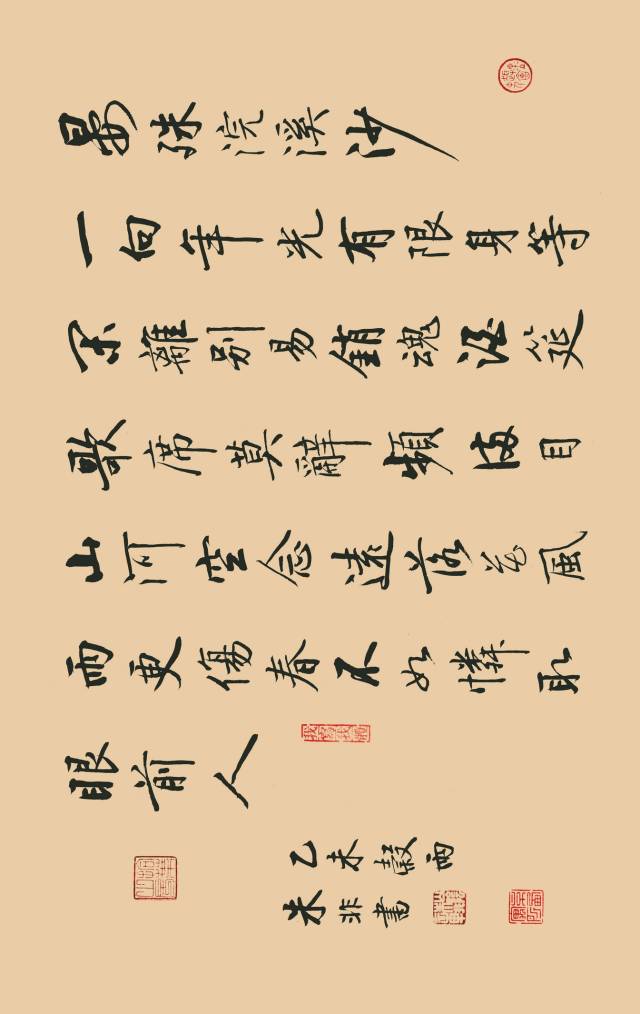 晏殊浣溪沙
一向年光有限身等
閑離別易銷魂酒筵
歌席莫辭頻滿目
山河空念遠落花風
雨更傷春不如憐取
眼前人
乙未穀雨
朱非書